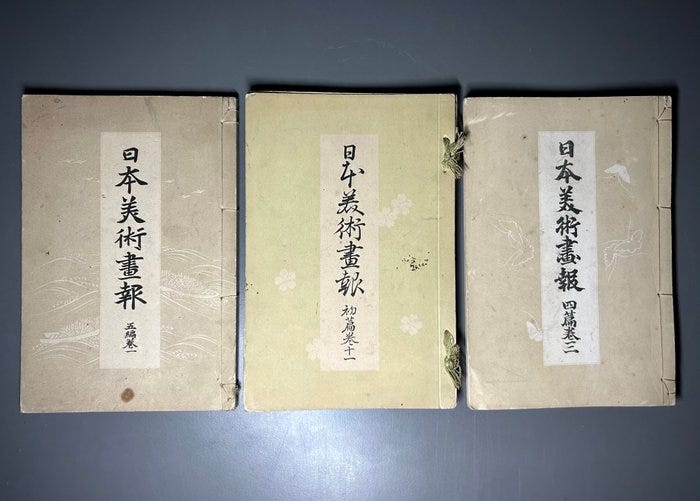 日本美術畫報
五編卷一
日本美術畫報
初篇卷十一
日本美術畫報
四篇卷二